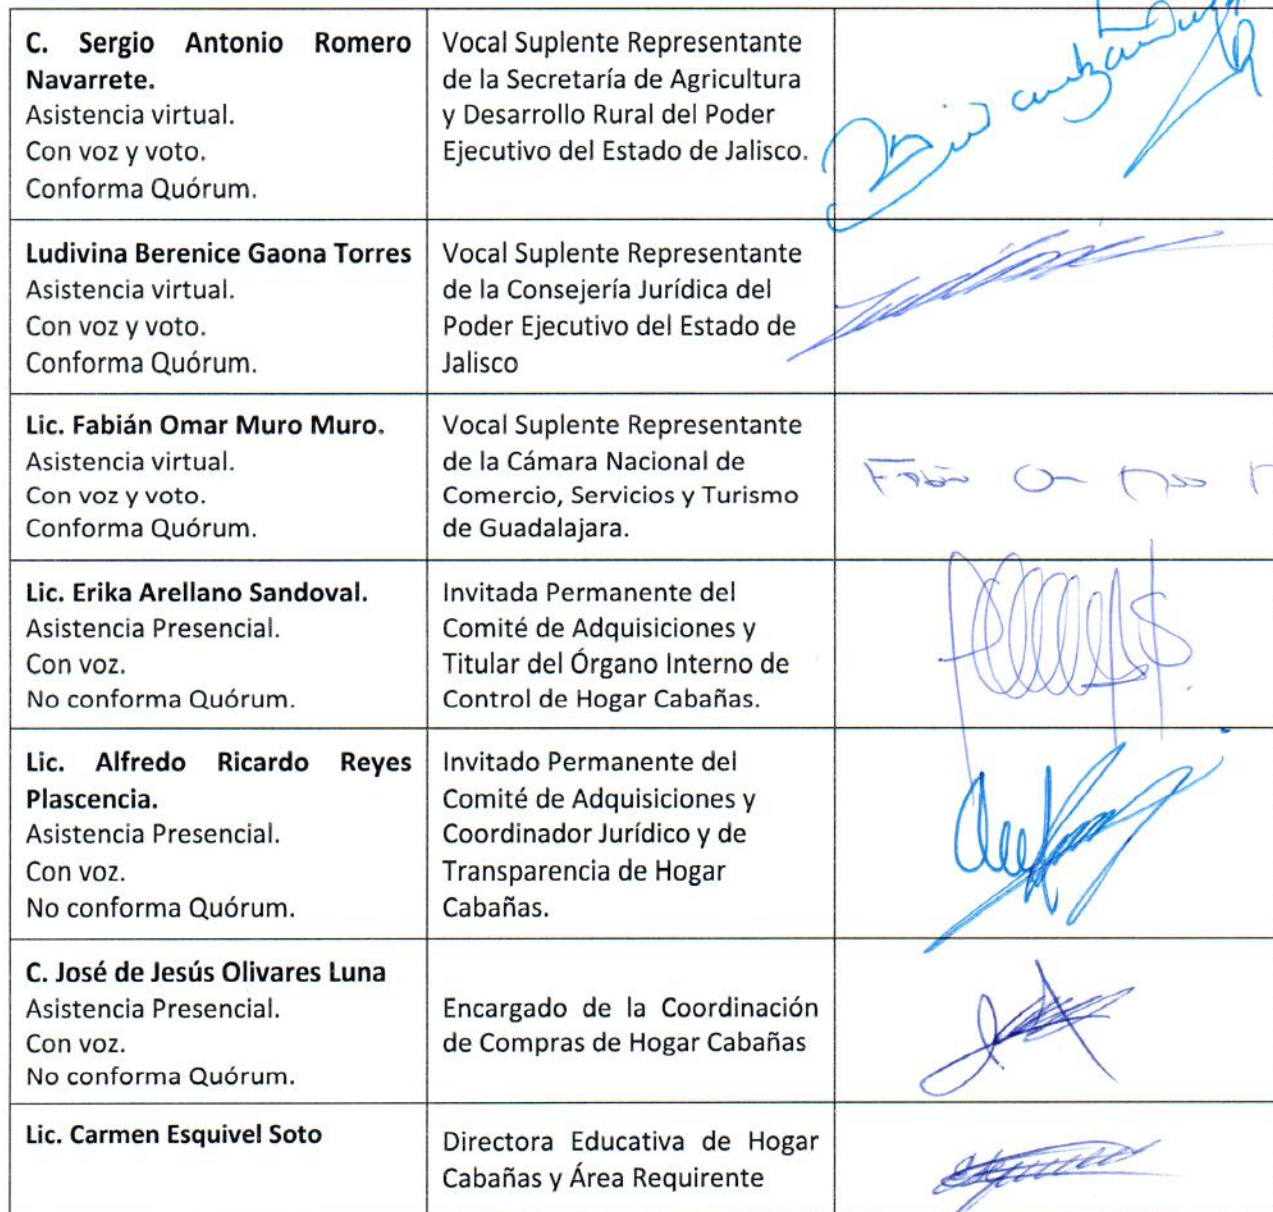 C. Sergio Antonio Romero
Navarrete.
Asistencia virtual.
Con voz y voto.
Conforma Quórum.
Vocal Suplente Representante
de la Secretaría de Agricultura
y Desarrollo Rural del Poder
Ejecutivo del Estado de Jalisco.
Ludivina Berenice Gaona Torres
Asistencia virtual.
Con voz y voto.
Conforma Quórum.
Vocal Suplente Representante
de la Consejería Jurídica del
Poder Ejecutivo del Estado de
Jalisco
Lic. Fabián Omar Muro Muro.
Asistencia virtual.
Con voz y voto.
Conforma Quórum.
Vocal Suplente Representante
de la Cámara Nacional de
Comercio, Servicios y Turismo
de Guadalajara.
Lic. Erika Arellano Sandoval.
Asistencia Presencial.
Con voz.
No conforma Quórum.
Invitada Permanente del
Comité de Adquisiciones y
Titular del Órgano Interno de
Control de Hogar Cabañas.
Lic. Alfredo Ricardo Reyes
Plascencia.
Asistencia Presencial.
Con voz.
No conforma Quórum.
Invitado Permanente del
Comité de Adquisiciones y
Coordinador Jurídico y de
Transparencia de Hogar
Cabañas.
C. José de Jesús Olivares Luna
Asistencia Presencial.
Con voz.
No conforma Quórum.
Encargado de la Coordinación
de Compras de Hogar Cabañas
Lic. Carmen Esquivel Soto
Directora Educativa de Hogar
Cabañas y Área Requirente